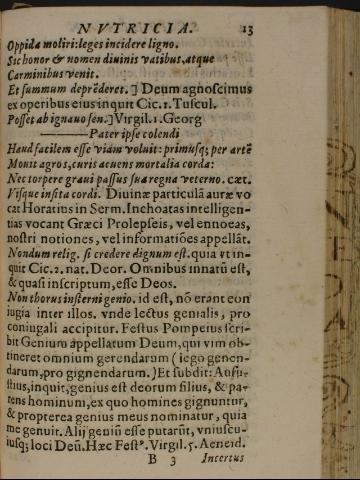 NVTRICIA. 13
Oppida moliri: leges incidere ligno.
Sic honor & nomen diuinis vatibus, atque
Carminibus venit.
Et summum deprẽderet.] Deum agnoscimus
ex operibus eius inquit Cic. 1. Tuscul.
Posset ab ignauo sen.] Virgil. 1. Georg
Pater ipse colendi
Haud facilem esse viam voluit: primusq; per artẽ
Mouit agros, curis acuens mortalia corda:
Nec torpere graui passus sua regna veterno. cæt.
Visque insita cordi. Diuinæ particulã auræ vo
cat Horatius in Serm. Inchoatas intelligen-
tias vocant Græci Prolepseis, vel ennoeas,
nostri notiones, vel informatiões appellãt.
Nondum relig. si credere dignum est. quia vt in-
quit Cic. 2. nat. Deor. Omnibus innatũ est,
& quasi inscriptum, esse Deos.
Non thorus insterni genio. id est, nõ erant con
iugia inter illos. vnde lectus genialis, pro
coniugali accipitur. Festus Pompeius scri-
bit Genium appellatum Deum, qui vim ob-
tineret omnium gerendarum (iego genen-
darum, pro gignendarum.) Et subdit: Aufu-
stius, inquit, genius est deorum filius, & pa-
rens hominum, ex quo homines gignuntur,
& propterea genius meus nominatur, quia
me genuit. Alij geniũ esse putarũt, vniuscu-
iusq; loci Deũ. Hæc Fest⁹. Virgil. 5. Aeneid.
B 3 Incertus